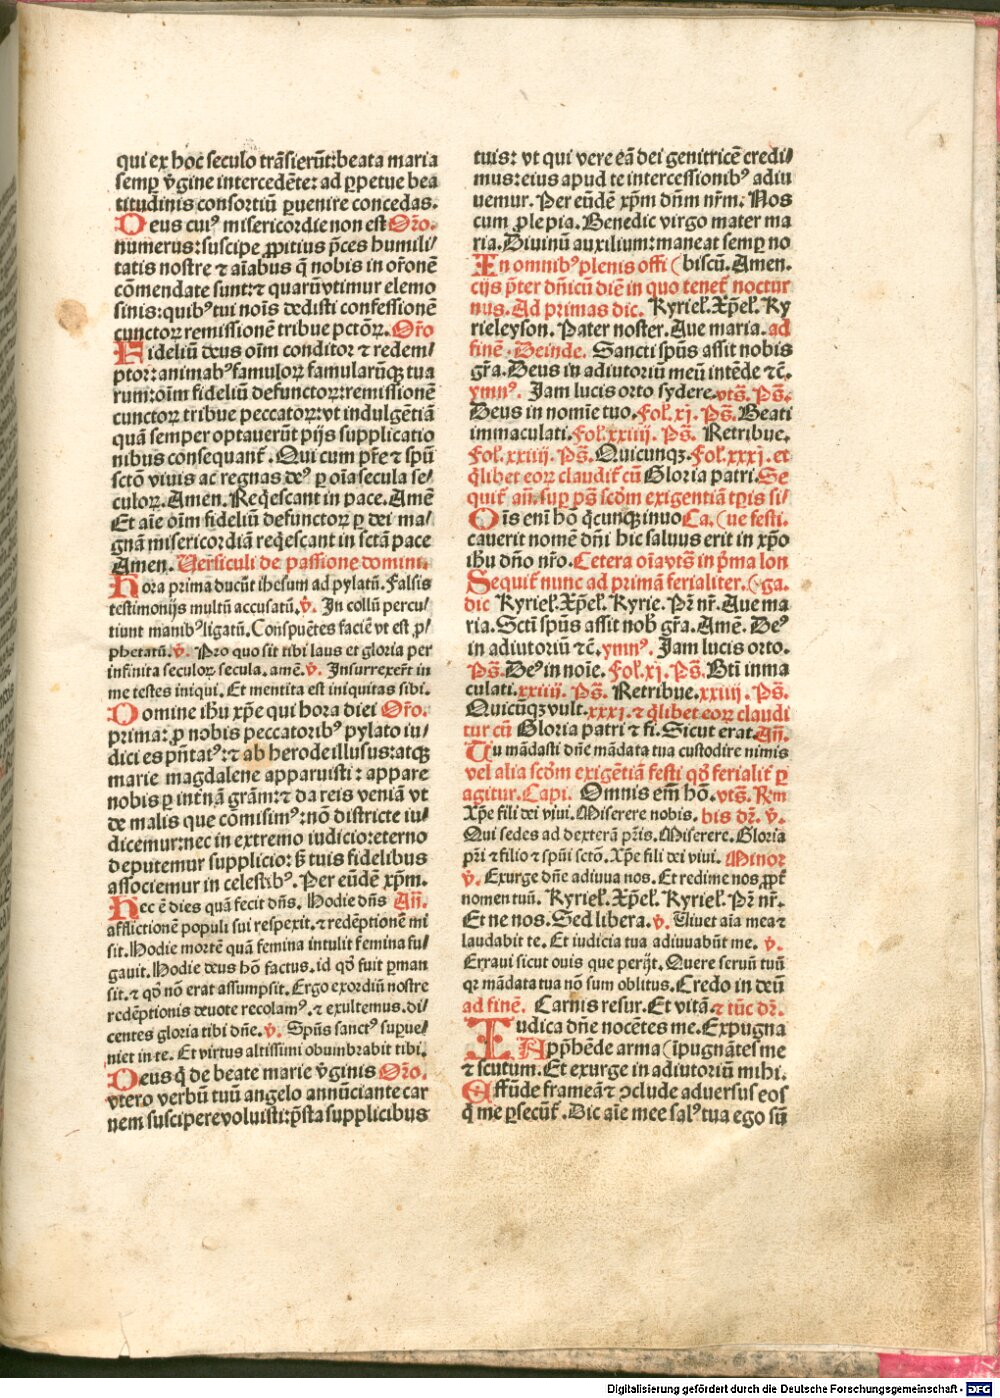 qui ex hoc seculo trāsierūt:beata maria
semꝑ v̄gine intercedēte: ad ꝑpetue bea
titudinis consortiū ꝑuenire concedas.
Deus cuiꝰ misericordie non est Orō.
numerus:suscipe ꝓpitius p̄ces humili/
tatis nostre ⁊ aīabus q̄ nobis in or̄onē
cōmendate sunt:⁊ quarū vtimur elemo
sinis:quibꝰ tui noīs dedisti confessionē
cunctoꝝ remissionē tribue pctōꝝ. Orō
Fideliū deus oīm conditor ⁊ redem/
ptor:animabꝰ famuloꝝ famularūqꝫ tua
rum:oīm fideliū defunctoꝝ:remissionē
cunctoꝝ tribue peccatoꝝ:vt indulgētiā
quā semper optauerūt pijs supplicatio
nibus consequant᷑. Qui cum pr̄e ⁊ spū
sctō viuis ac regnas deꝰ ꝑ oīa secula se/
culoꝝ. Amen. Reqescant in pace. Amē
Et aīe oīm fideliū defunctoꝝ ꝑ dei ma/
gnā misericordiā reqescant in sctā pace
Amen. Uersiculi de passione domini.
Hora prima ducūt ihesum ad pylatū. Falsis
testimonijs multū accusatū. v̄. In collū percu/
tiunt manibꝰ ligatū. Conspuētes faciē vt est ꝓ/
phetatū. v̄. Pro quo sit tibi laus et gloria per
infinita seculoꝝ secula. amē. v̄. Insurrexer̄t in
me testes iniqui. Et mentita est iniquitas sibi.
Domine ihū xp̄e qui hora diei Orō.
prima: ꝓ nobis peccatoribꝰ pylato iu/
dici es pn̄tatꝰ:⁊ ab herode illusus:atqꝫ
marie magdalene apparuisti: appare
nobis ꝑ int̄nā grām:⁊ da reis veniā vt
de malis que cōmisimꝰ:nō districte iu/
dicemur:nec in extremo iudicio:eterno
deputemur supplicio: s̄ tuis fidelibus
associemur in celestibꝰ. Per eūdē xp̄m.
Hec ē dies quā fecit dn̄s. Hodie dn̄s Añ.
afflictionē populi sui respexit. ⁊ redēptionē mi
sit. Hodie mortē quā femina intulit femina fu/
gauit. Hodie deus hō factus. id qd̄ fuit ꝑman
sit. ⁊ qd̄ nō erat assumpsit. Ergo exordiū nostre
redēptionis deuote recolamꝰ. ⁊ exultemus. di/
centes gloria tibi dn̄e. v̄. Spūs sanctꝰ suꝑue/
niet in te. Et virtus altissimi obumbrabit tibi.
Deus q̄ de beate marie v̄ginis Orō.
vtero verbū tuū angelo annūciante car
nem suscipere voluisti: p̄sta supplicibus
tuis: vt qui vere eā dei genitricē credi/
mus:eius apud te intercessionibꝰ adiu
uemur. Per eūdē xp̄m dn̄m nr̄m. Nos
cum ꝓle pia. Benedic virgo mater ma
ria. Diuinū auxilium: maneat semꝑ no
In omnibꝰ plenis offi (biscū. Amen.
cijs p̄ter dn̄icū diē in quo tenet᷑ noctur
nus. Ad primas dic. Kyriel̄. Xp̄el̄. Ky
rieleyson. Pater noster. Aue maria. ad
finē. Deinde. Sancti spūs assit nobis
gr̄a. Deus in adiutoriū meū intēde ⁊ē.
ymnꝰ. Jam lucis orto sydere. vts̄. Ps̄.
Deus in nomīe tuo. Fol̄. xj. Ps̄. Beati
immaculati. Fol̄. xxiiij. Ps̄. Retribue.
Fol̄. xxiiij. Ps̄. Quicunqꝫ. Fol̄. xxxj. et
qͥlibet eoꝝ claudit᷑ cū Gloria patri. Se
quit᷑ añ. suꝑ pā scd̄m exigentiā tꝑis si/
Oīs eni hō qͥcunqꝫ inuo Ca. (ue festi.
cauerit nomē dn̄i hic saluus erit in xp̄o
ihū dn̄o nr̄o. Cetera oīa vts̄ in p̄ma lon
Sequit᷑ nunc ad primā ferialiter. (ga.
dic Kyriel̄. Xp̄el̄. Kyrie. Pr̄ nr̄. Aue ma
ria. Sctī spūs assit nob̄ gr̄a. Amē. Deꝰ
in adiutoriū ⁊ē. ymnꝰ. Jam lucis orto.
Ps̄. Deꝰ in noīe. Fol̄. xj. Ps̄. Btī inma
culati. xxiiij. Ps̄. Retribue. xxiiij. Ps̄.
Quicūqꝫ vult. xxxj. ⁊ qͥlibet eoꝝ claudi
tur cū Gloria patri ⁊ fi. Sicut erat. Añ.
Tu mādasti dn̄e mādata tua custodire nimis
vel alia scd̄m exigētiā festi qd̄ ferialit᷑ ꝑ
agitur. Capi. Omnis em̄ hō. vts̄. Rm
Xp̄e fili dei viui. Miserere nobis. bis dr̄. v̄.
Qui sedes ad dexterā pr̄is. Miserere. Gloria
pr̄i ⁊ filio ⁊ spūi sctō. Xp̄e fili dei viui. Minor
v̄. Exurge dn̄e adiuua nos. Et redime nos ꝓpt̄
nomen tuū. Kyriel̄. Xp̄el̄. Kyriel̄. Pr̄ nr̄.
Et ne nos. Sed libera. v̄. Viuet aīa mea ⁊
laudabit te. Et iudicia tua adiuuabūt me. v̄.
Erraui sicut ouis que perijt. Quere seruū tuū
qꝛ mādata tua nō sum oblitus. Credo in deū
ad finē. Carnis resur. Et vitā. ⁊ tūc dr̄.
Iudica dn̄e nocētes me. Expugna
Apꝑhēde arma (īpugnātes me
⁊ scutum. Et exurge in adiutoriū mihi.
Effūde frameā ⁊ ꝯclude aduersus eos
q̄ me ꝑsecūt᷑. Dic aīe mee salꝰ tua ego sū
Digitalisierung gefördert durch die Deutsche Forschungsgemeinschaft - DFG